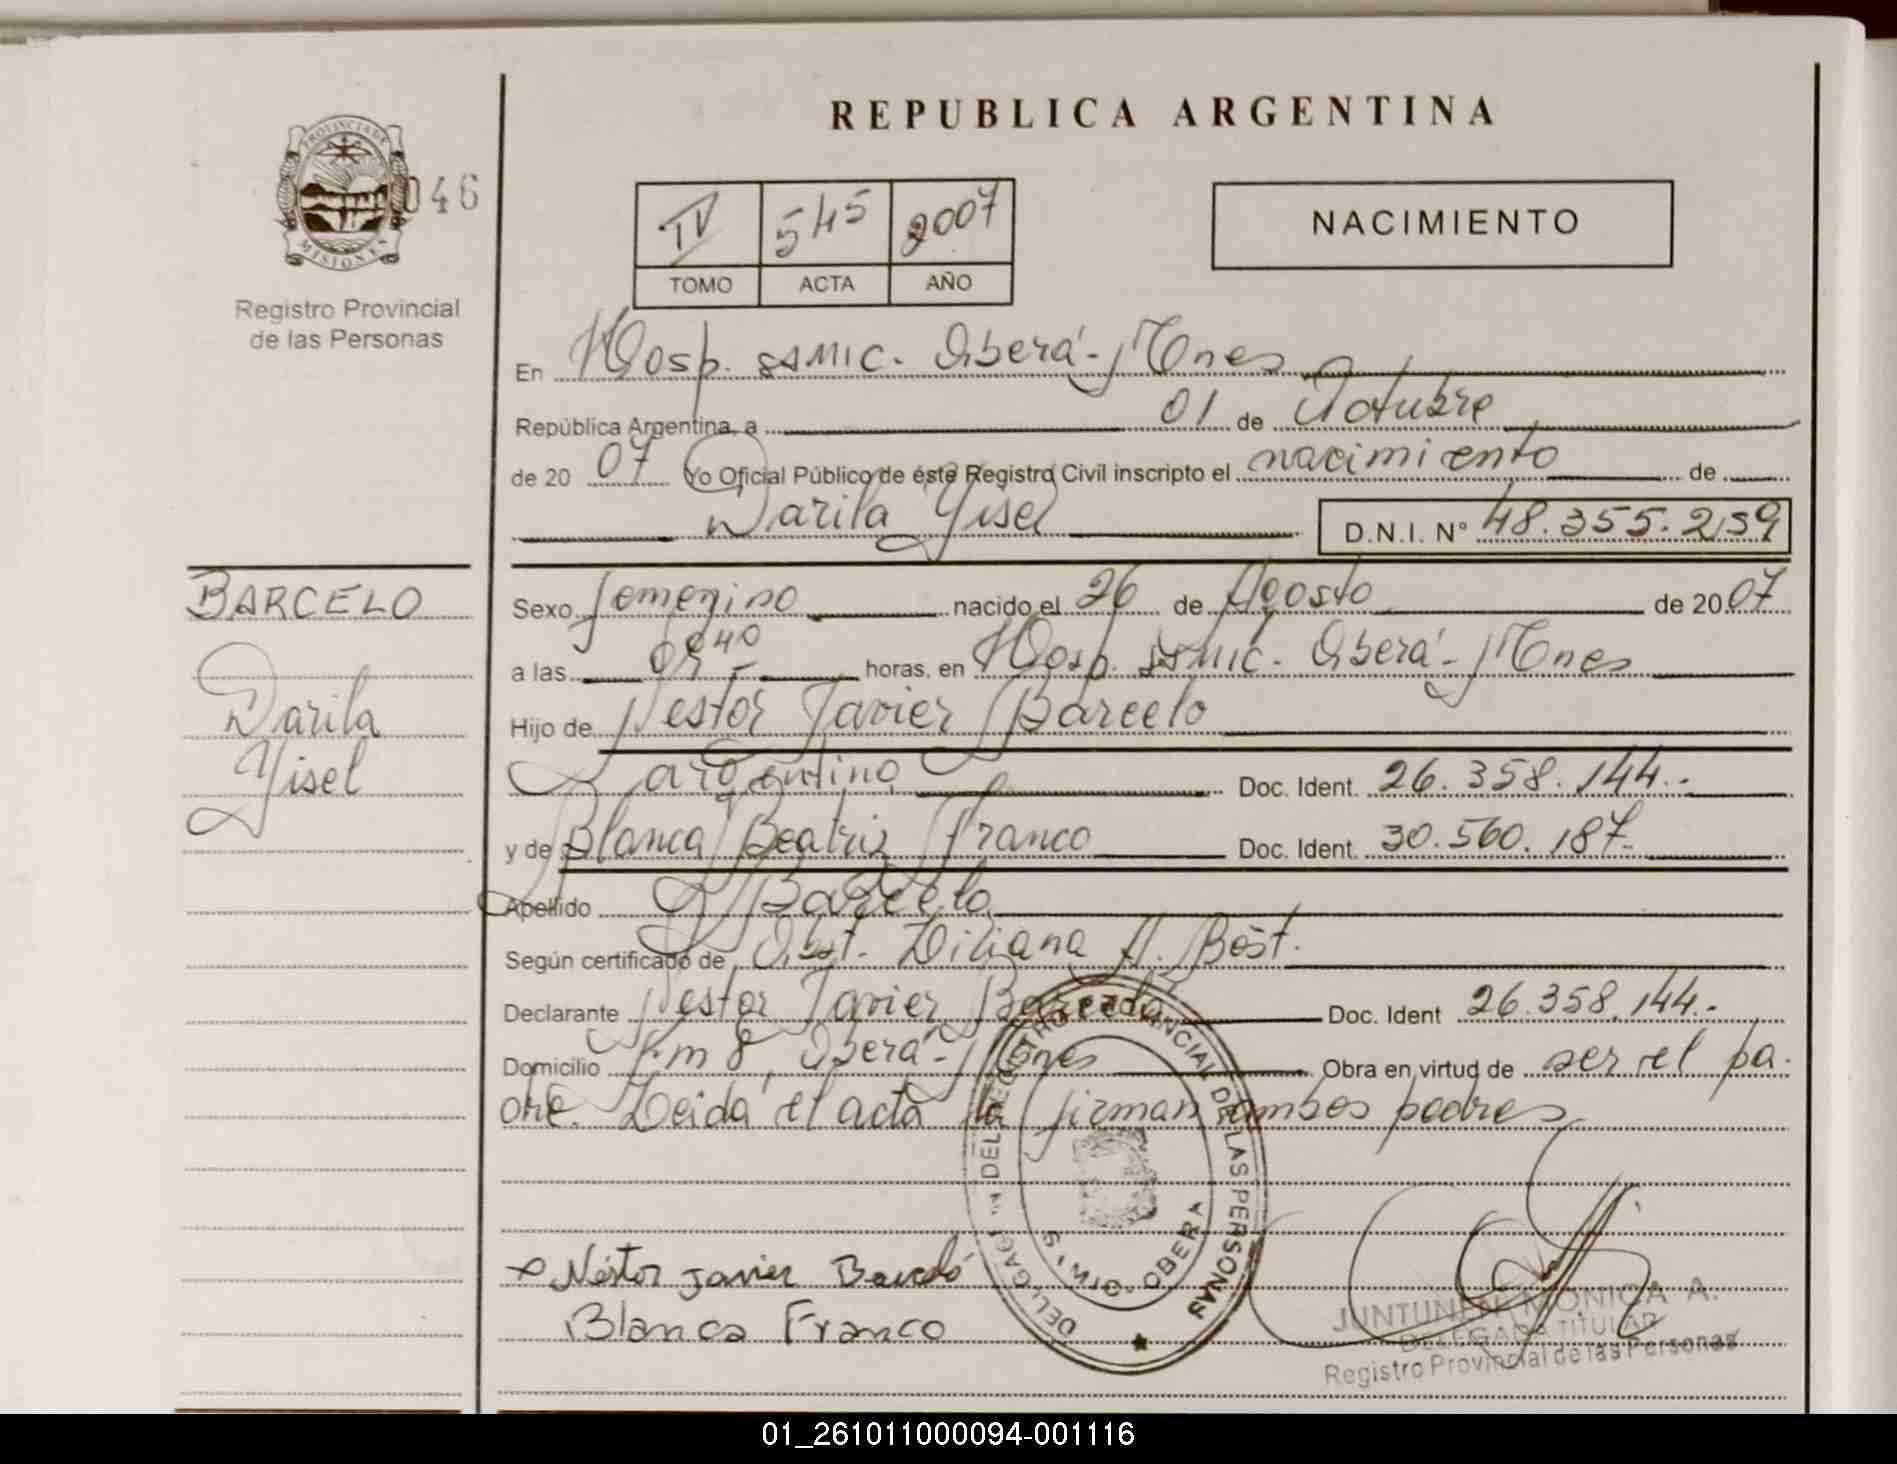 REPUBLICA ARGENTINA
PROVINCIA DE
MISIONES
046
Registro Provincial
de las Personas
IV 545 2007
TOMO ACTA AÑO
NACIMIENTO
En Hosp. SAMIC. Oberá - Mnes
República Argentina, a 01 de Octubre
de 20 07 Yo Oficial Público de éste Registro Civil inscripto el nacimiento de
Darila Yisel D.N.I. Nº 48.355.259
BARCELO
Darila
Yisel
Sexo femenino nacido el 26 de Agosto de 20 07
a las 40 horas, en Hosp. SAMIC. Oberá - Mnes
Hijo de Nestor Javier Barcelo
argentino Doc. Ident. 26.358.144.-
y de Blanca Beatriz Franco Doc. Ident. 30.560.187.-
Apellido Barcelo
Según certificado de Obst. Liliana A. Bost.
Declarante Nestor Javier Barcelo Doc. Ident 26.358.144.-
Domicilio Km 8, Oberá - Mnes Obra en virtud de ser el pa
dre. Leida el acta la firman ambos padres
Néstor Javier Barceló
Blanca Franco
DEL REGISTRO PROVINCIAL DE LAS PERSONAS
OBERA
JUNTUNEN MONICA A.
DELEGADA TITULAR
Registro Provincial de las Personas
01_261011000094-001116